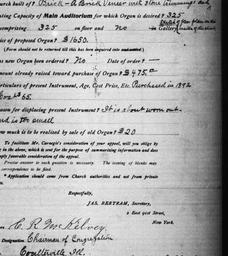 Church built of? Brick - & Brick Veneer with stone trimmings and
Seating Capacity of Main Auditorium for which Organ is desired? 325
325 on floor and No in Gallery
Price of proposed Organ? $1650.
(Form should not be returned till this has been inquired into
new Organ been ordered? No Date of order? —
amount already raised toward purchase of Organ? $475.00
Particulars of present Instrument, Age, Cost Price, Etc. Purchased in 1892
Cost $65.
reason for displacing present Instrument? It is about worn out.
and is too small
How much is to be realized by sale of old Organ? $20
To facilitate Mr. Carnegie's consideration of your appeal, will you oblige by
in the above, which is sent for the purpose of summarizing information and does
imply favorable consideration of the appeal.
Precise answer to each question is necessary. The issuing of blanks may
correspondence to be filed.
Application should come from Church authorities and not from private
Respectfully,
JAS. BERTRAM, Secretary,
2 East 91st Street,
New York.
C. R. McKelvey
Designation. Chairman of Congregation
Coulterville Ill.